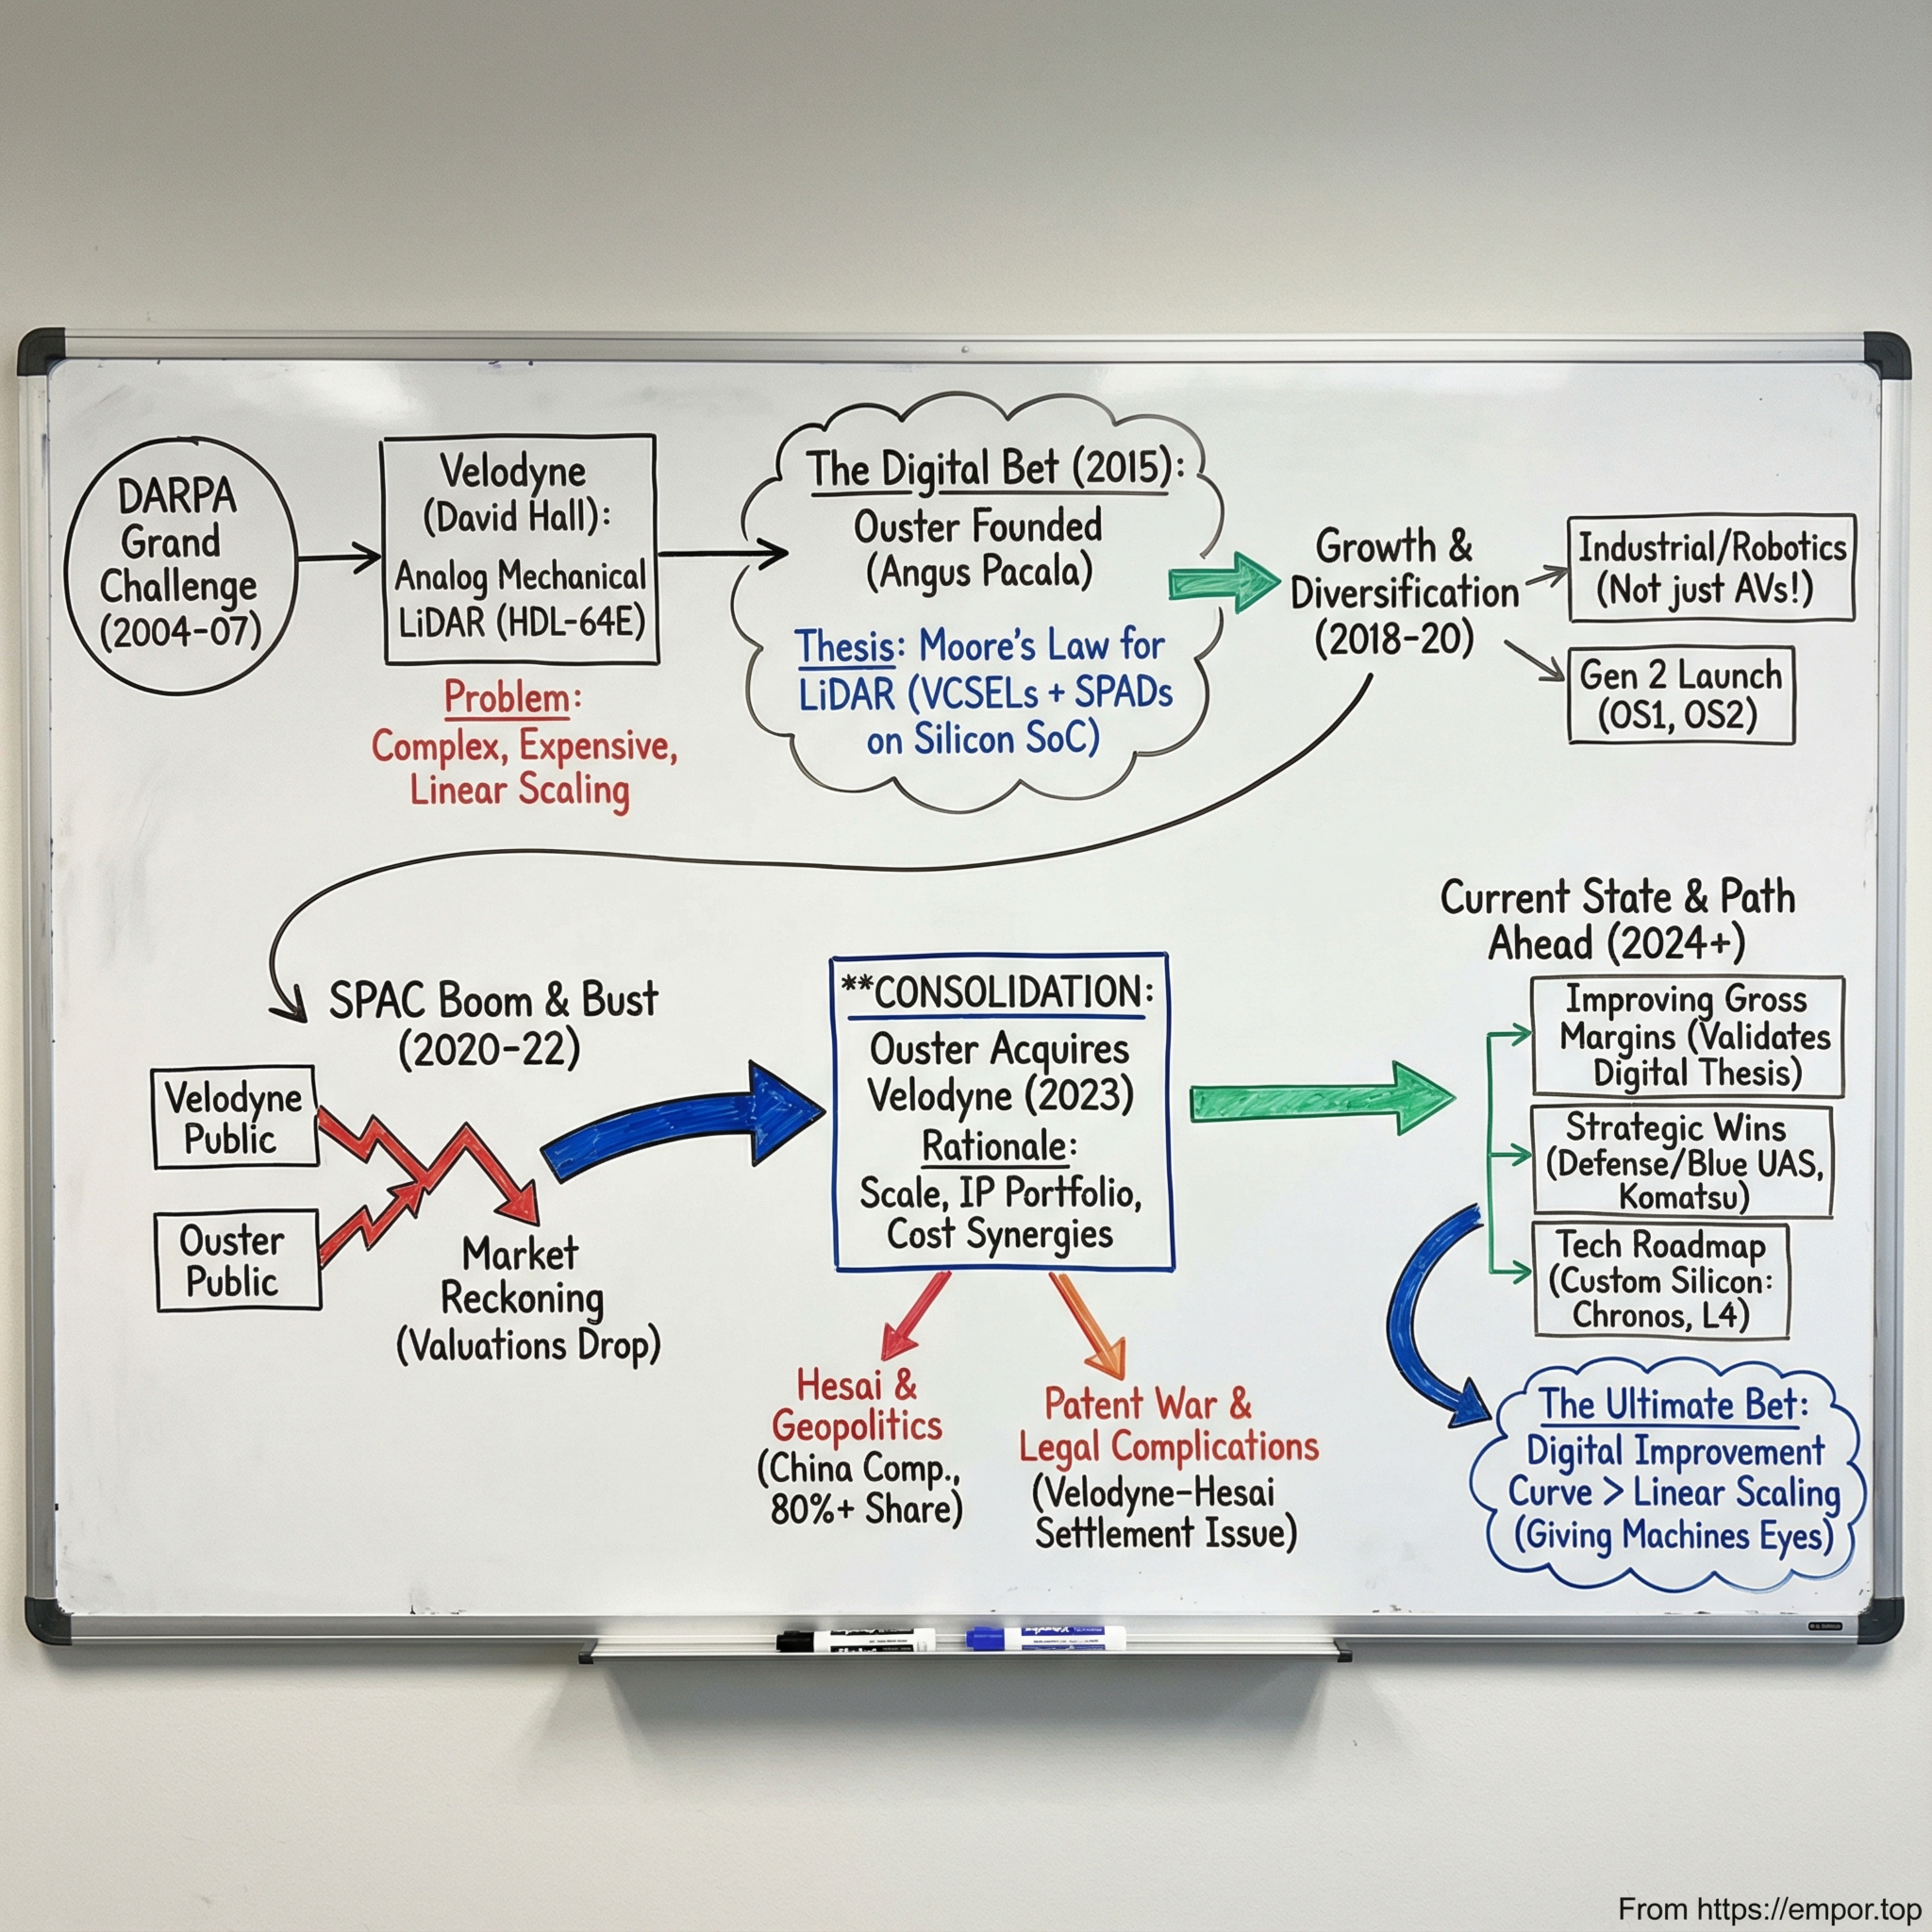 DARPA
Grand
Challenge
(2004-07)
Velodyne
(David Hall):
Analog Mechanical
LiDAR (HDL-64E)
Problem:
Complex, Expensive,
Linear Scaling
The Digital Bet (2015):
Ouster Founded
(Angus Pacala)
Thesis: Moore's Law for
LiDAR (VCSELs + SPADs
on Silicon SoC)
Growth &
Diversification
(2018-20)
Industrial/Robotics
(Not just AVs!)
Gen 2 Launch
(OS1, OS2)
SPAC Boom & Bust
(2020-22)
Velodyne
Public
Ouster
Public
Market
Reckoning
(Valuations Drop)
**CONSOLIDATION:
Ouster Acquires
Velodyne (2023)
Rationale:
Scale, IP Portfolio,
Cost Synergies
Hesai &
Geopolitics
(China Comp.,
80%+ Share)
Patent War &
Legal Complications
(Velodyne-Hesai
Settlement Issue)
Current State & Path
Ahead (2024+)
Improving Gross
Margins (Validates
Digital Thesis)
Strategic Wins
(Defense/Blue UAS,
Komatsu)
Tech Roadmap
(Custom Silicon:
Chronos, L4)
The Ultimate Bet:
Digital Improvement
Curve > Linear Scaling
(Giving Machines Eyes)
From https://empor.top